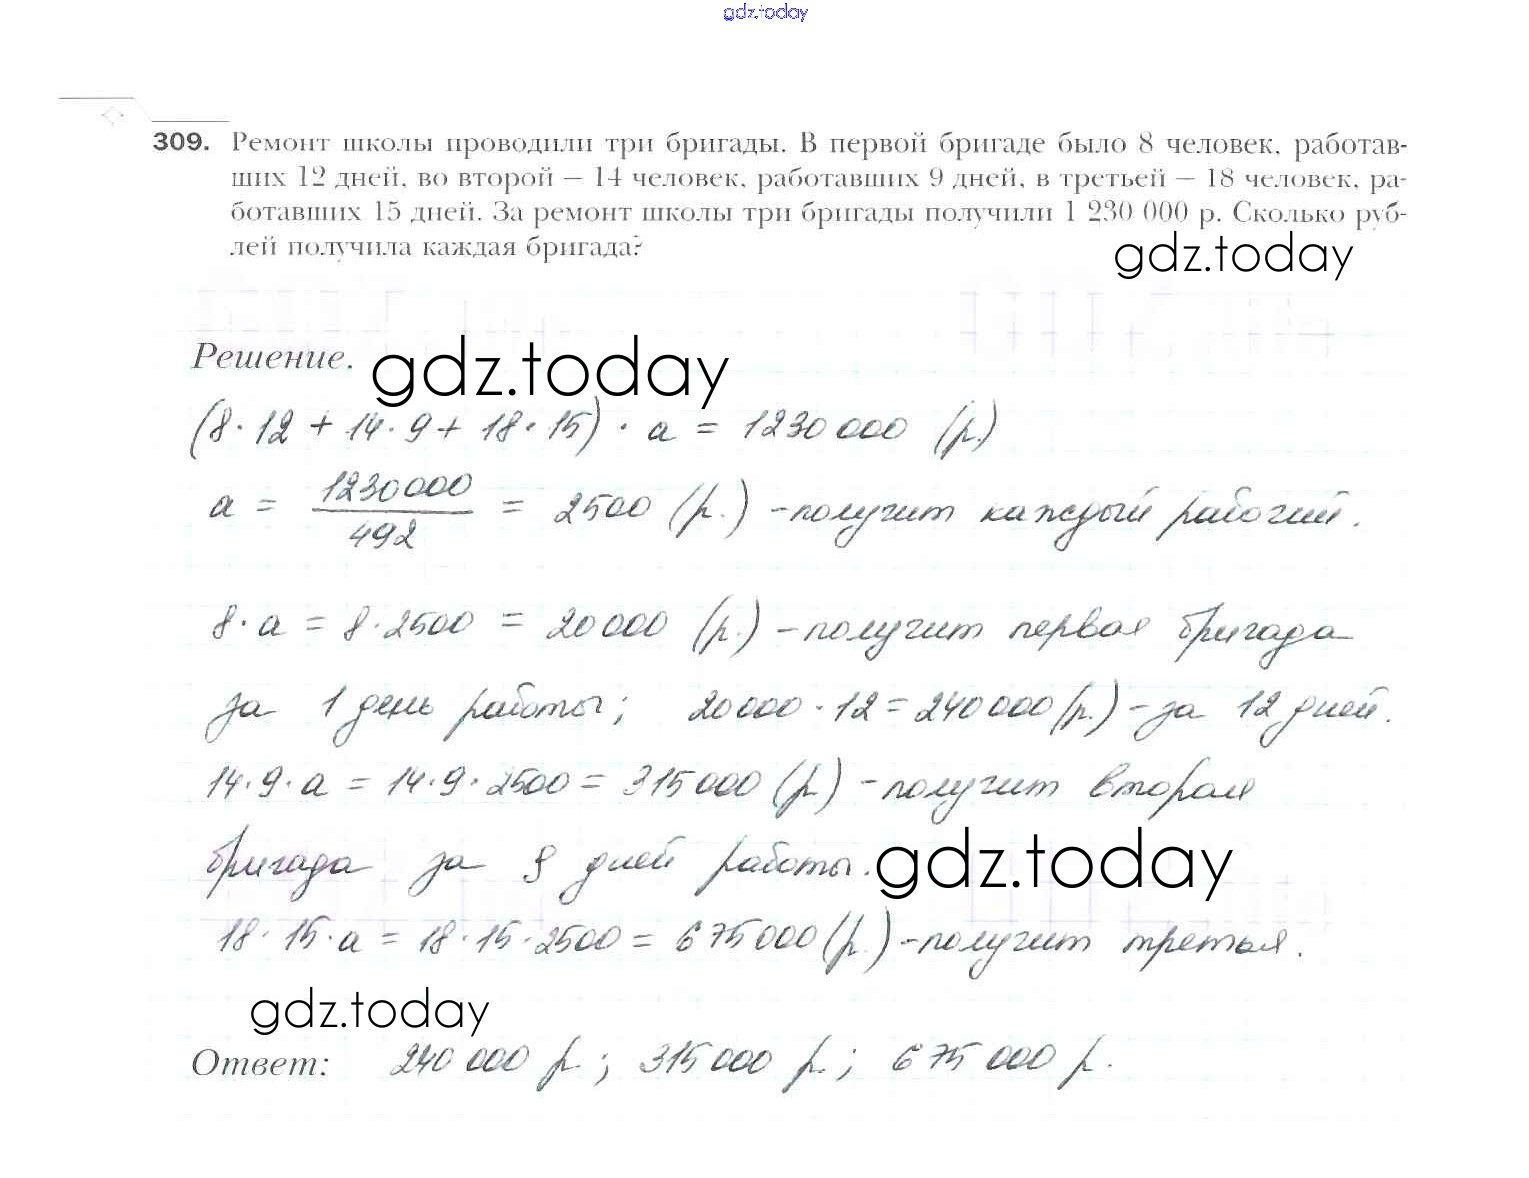 gdz.today
309. Ремонт школы проводили три бригады. В первой бригаде было 8 человек, работав-
ших 12 дней, во второй – 14 человек, работавших 9 дней, в третьей – 18 человек, ра-
ботавших 15 дней. За ремонт школы три бригады получили 1 230 000 р. Сколько руб-
лей получила каждая бригада?
gdz.today
Решение.
gdz.today
(8·12 + 14·9 + 18·15)·a = 1230 000 (р.)
a = 1230000/492 = 2500 (р.) – получит каждый рабочий.
8·a = 8·2500 = 20000 (р.) – получит первая бригада
за 1 день работы; 20000·12 = 240 000 (р.) – за 12 дней.
14·9·a = 14·9·2500 = 315 000 (р.) – получит вторая
бригада за 9 дней работы.
gdz.today
18·15·a = 18·15·2500 = 675 000 (р.) – получит третья.
gdz.today
Ответ: 240 000 р.; 315 000 р.; 675 000 р.